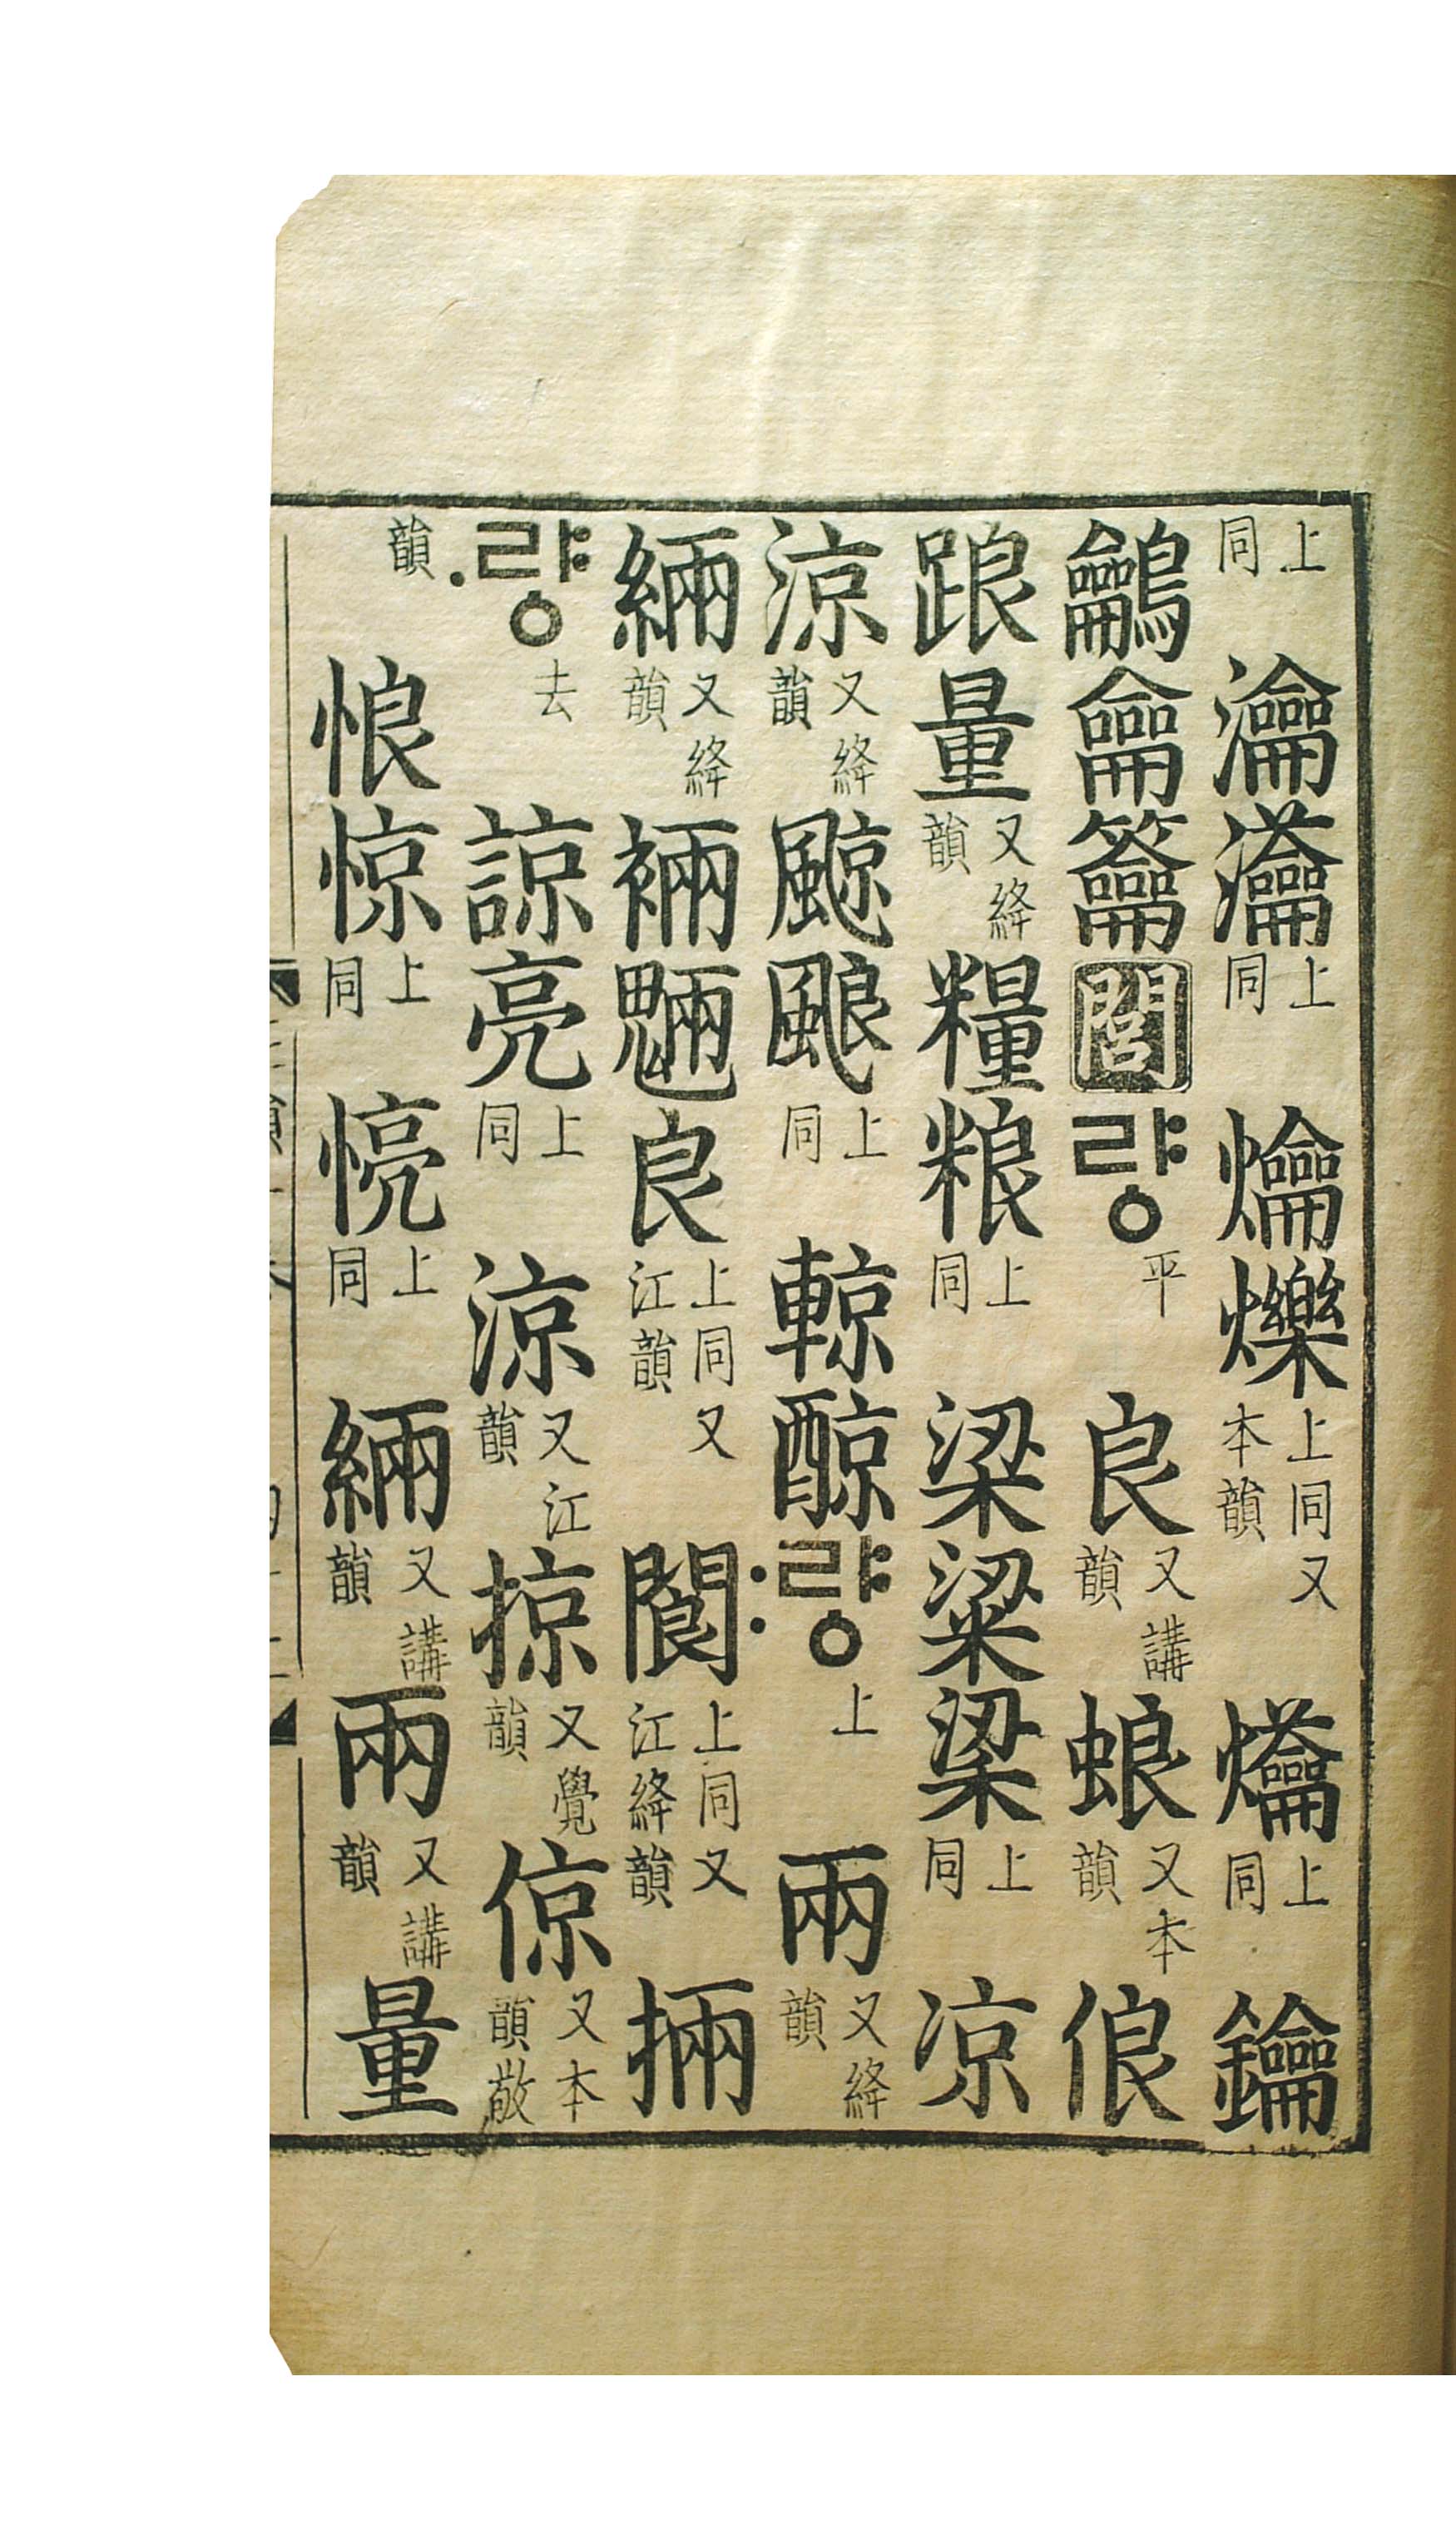 上同 瀹 上同 爚 爍 上同又本韻 上同 鑰
鸙 龠 籥 閭 량 平 良 又講韻 蜋 又本韻 俍
踉 量 又絳韻 糧 粮 上同 梁 粱 梁 上同 凉
涼 又絳韻 上同 輬 䣼 〯량 上 兩 又絳韻
緉 又絳韻 裲 魎 良 上同又江韻 閬 上同又江絳韻 掚
〮량 去 諒 亮 上同 涼 又江韻 掠 又覺韻 倞 又本韻敬
韻 悢 惊 上同 上同 緉 又講韻 兩 又講韻 量